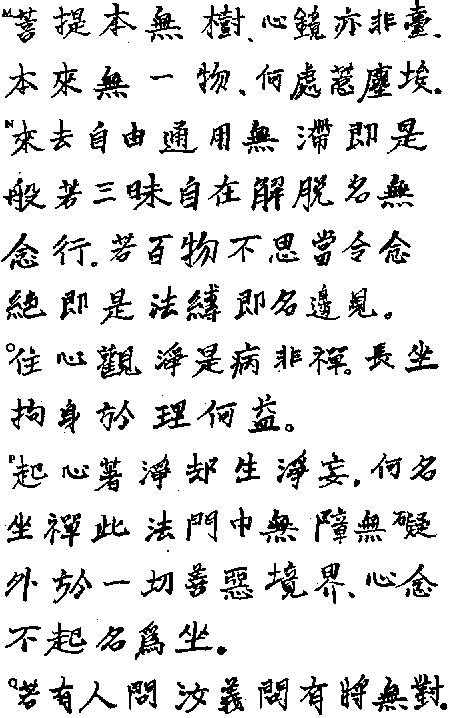 M菩提本無樹、心鏡亦非臺、
本來無一物、何處惹塵埃。
N來去自由通用無滯即是
般若三昧自在解脫名無
念行。若百物不思當令念
絕即是法縛即名邊見。
O住心觀淨是病非禪。長坐
拘身於理何益。
P起心著淨却生淨妄。何名
坐禪此法門中無障無礙
外於一切善惡境界、心念
不起名爲坐。
Q若有人問汝義問有將無對.